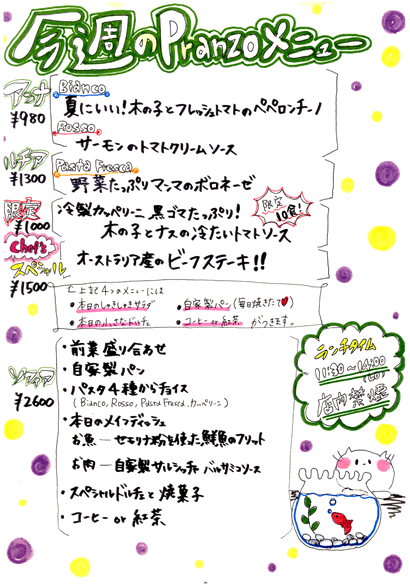 今週のPranzoメニュー
アンナ
¥980
Bianco
夏にいい！木の子とフレッシュトマトのペペロンチーノ
Rosso
サーモンのトマトクリームソース
ルチア
¥1300
Pasta Fresca
野菜たっぷりマンマのボロネーゼ
限定
¥1000
冷製カッペリーニ 黒ゴマたっぷり！
限定10食！
木の子とナスの冷たいトマトソース
Chef's
スペシャル
¥1500
オーストラリア産のビーフステーキ!!
上記4つのメニューには
・本日のしゃきしゃきサラダ
・自家製パン(毎日焼きたて♥)
・本日の小さなドルチェ
・コーヒー or 紅茶 がつきます。
ソフィア
¥2600
・前菜盛り合わせ
・自家製パン
・パスタ4種からチョイス
(Bianco, Rosso, Pasta Fresca, カッペリーニ)
・本日のメインディッシュ
お魚―セモリナ粉を使った鮮魚のフリット
お肉―自家製サルシッチャ バルサミコソース
・スペシャルドルチェと焼菓子
・コーヒー or 紅茶
ランチタイム
11:30〜14:00
店内禁煙